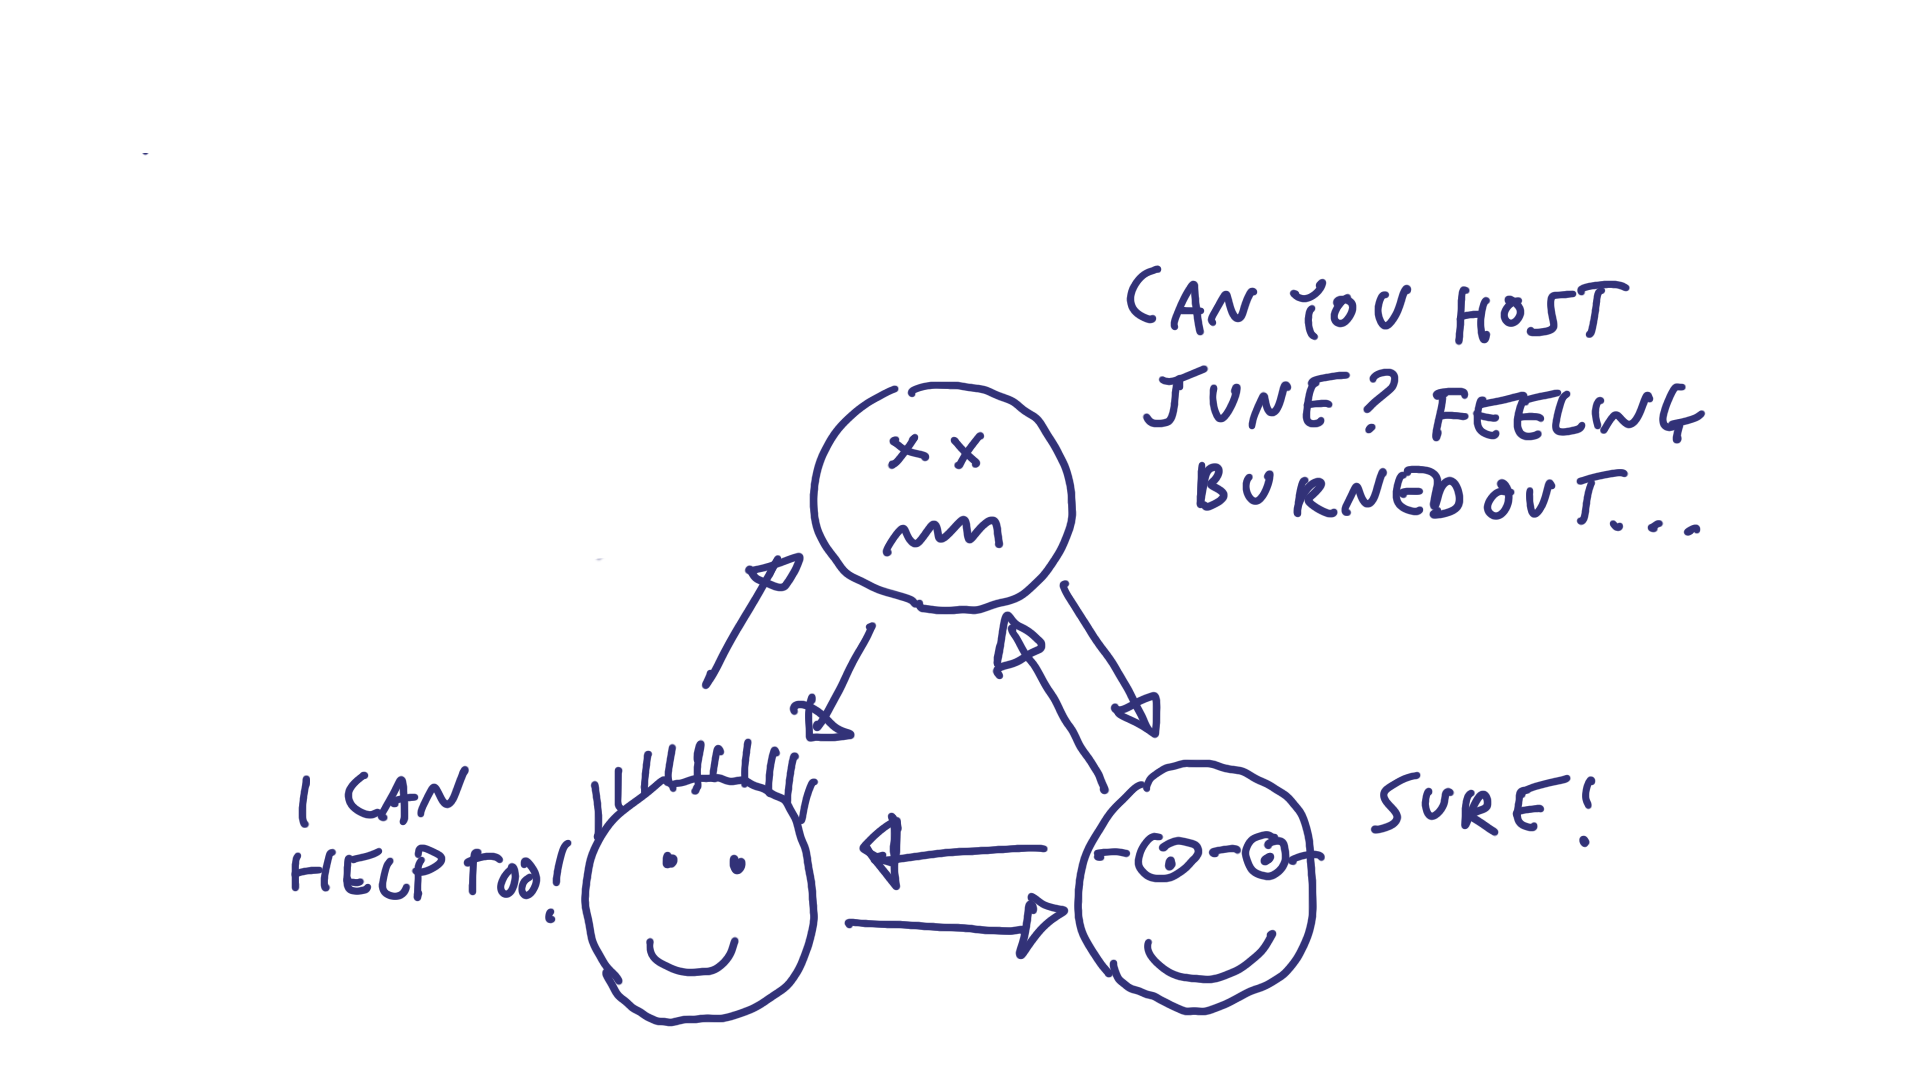 CAN YOU HOST
JUNE? FEELING
BURNED OUT...
I CAN
HELP TOO!
SURE!